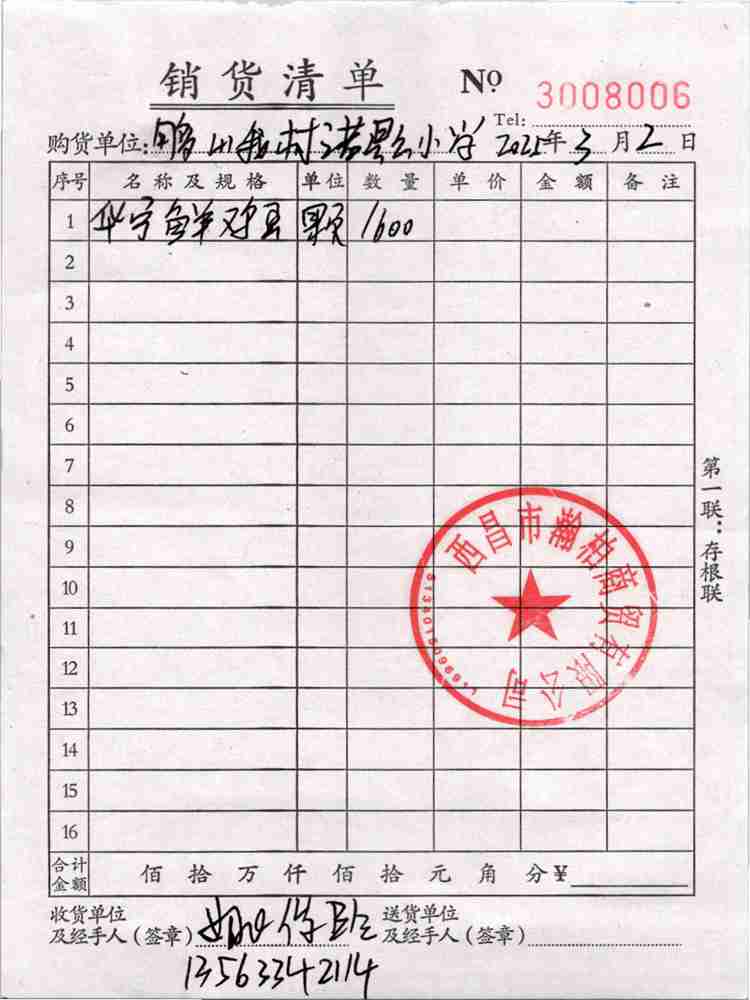 销货清单 Nº 3008006
Tel:
购货单位: 小学 2025年3月2日
序号 名称及规格 单位 数量 单价 金额 备注
1 华宁鲜鸡蛋 颗 1600
2
3
4
5
6
7
8
9
10
11
12
13
14
15
16
合计金额 佰拾万仟佰拾元角分¥
收货单位 送货单位
及经手人(签章) 及经手人(签章)
13563342114
第一联:存根联
西昌市瀚柏商贸有限公司